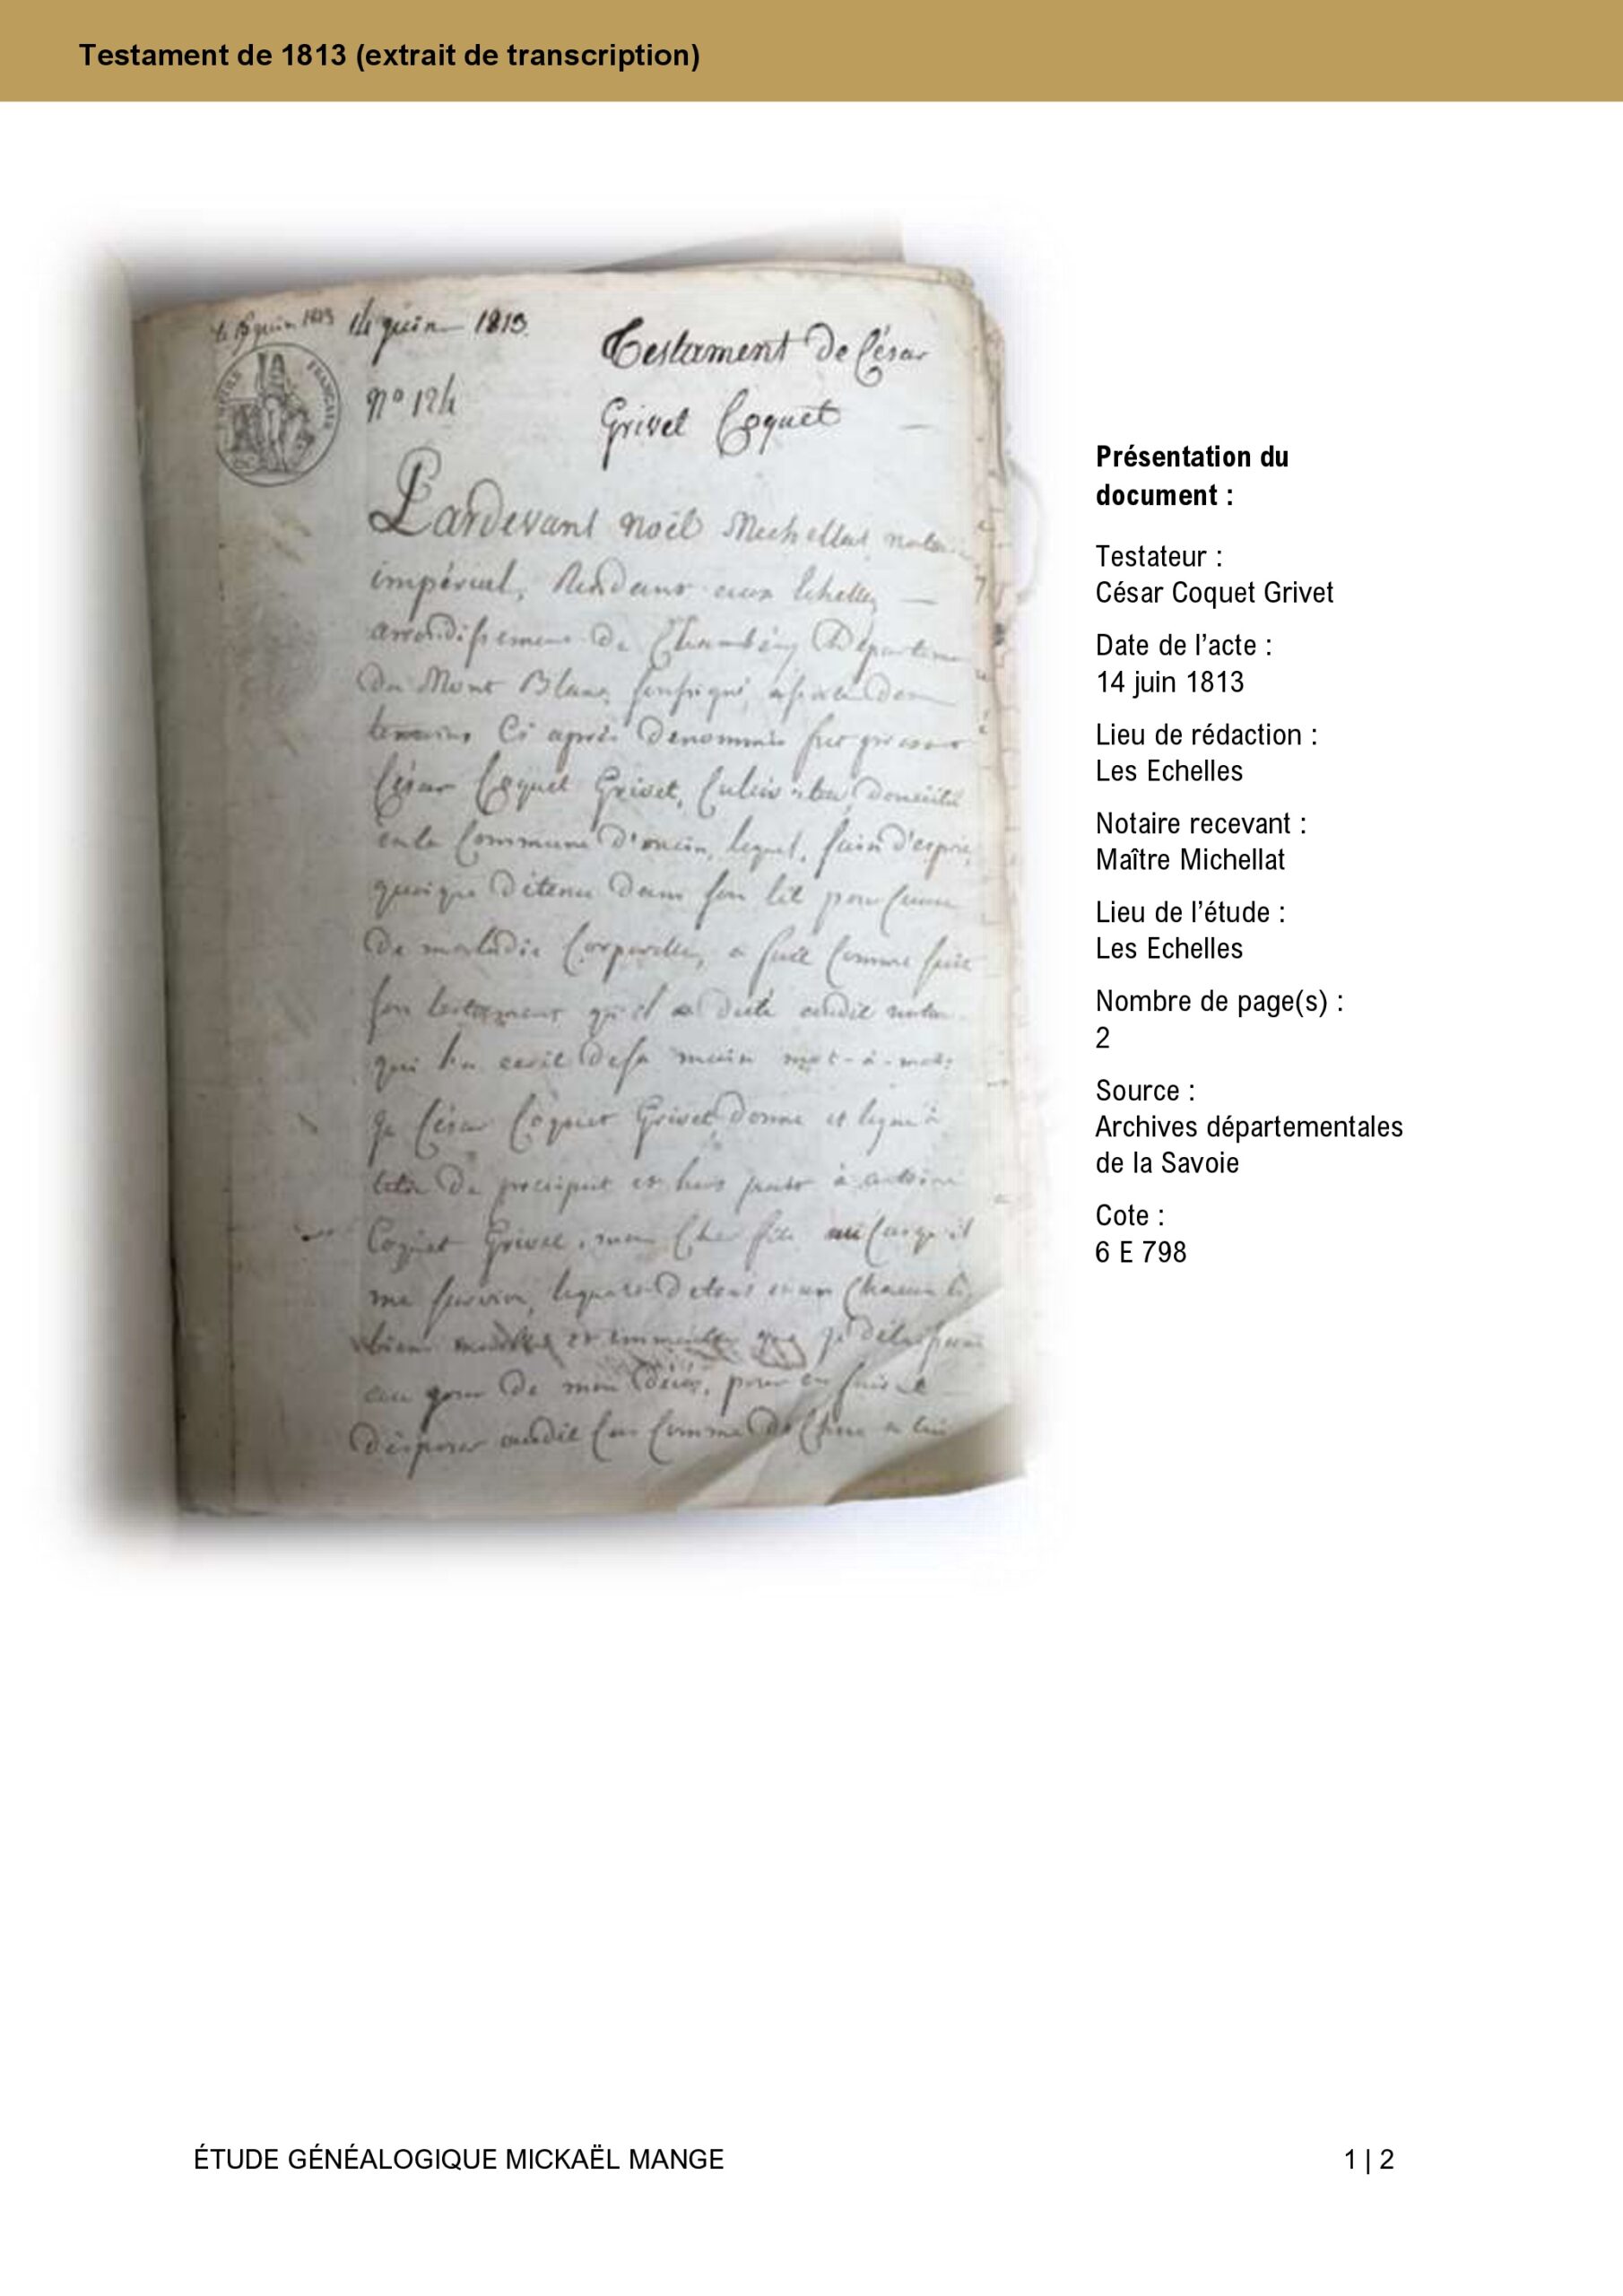 Testament de 1813 (extrait de transcription)
le 19 juin 1813 14 juin 1813.
Testament De César
EMPIRE FRANÇAIS
nº 124
Grivet Coquet
Pardevant Noël Michellat notaire
impérial, Résidant aux Echelles
arrondissement De Chambéry Département
Du Mont Blanc soussigné,
témoins Ci après Dénommés fut présent
César Coquet Grivet, Cultivateur Domicilié
en la Commune D'oncin, lequel, sain d'esprit
quoique Détenu Dans son lit pour Cause
De maladie Corporelle, a fait Comme suit
son testament qu'il a Dicté audit notaire
qui l'a écrit De sa main mot-à-mot:
Je César Coquet Grivet Donne et lègue à
titre De préciput et hors part à antoine
Coquet Grivet, mon Cher fils au Cas qu'il
me survive, le quart De tous et un Chacun les
biens meubles et immeubles que je Délaisserai
au jour De mon Décès, pour en faire et
Disposer audit Cas Comme De Chose à lui
Présentation du
document :
Testateur :
César Coquet Grivet
Date de l’acte :
14 juin 1813
Lieu de rédaction :
Les Echelles
Notaire recevant :
Maître Michellat
Lieu de l’étude :
Les Echelles
Nombre de page(s) :
2
Source :
Archives départementales
de la Savoie
Cote :
6 E 798
ÉTUDE GÉNÉALOGIQUE MICKAËL MANGE
1 | 2